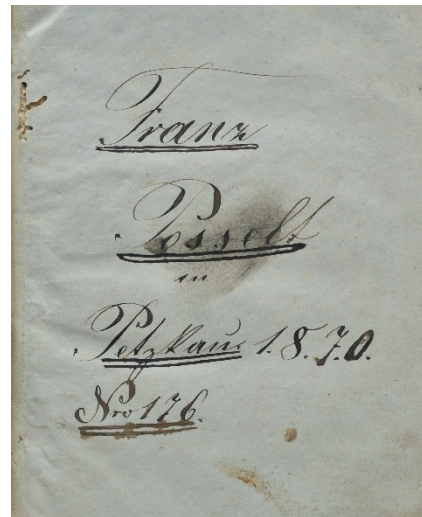 Franz
Posselt
in
Petzkau 1.8.7.0.
Nro 176.